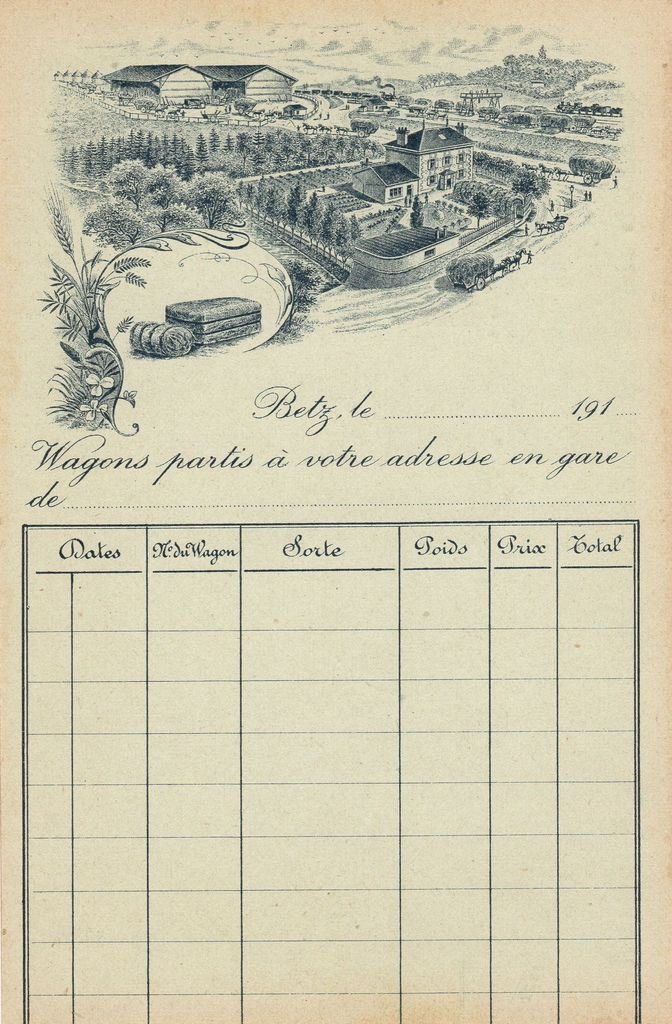 Betz, le ........................ 191 ....
Wagons partis à votre adresse en gare
de ........................
Dates N° du Wagon Sorte Poids Prix Total